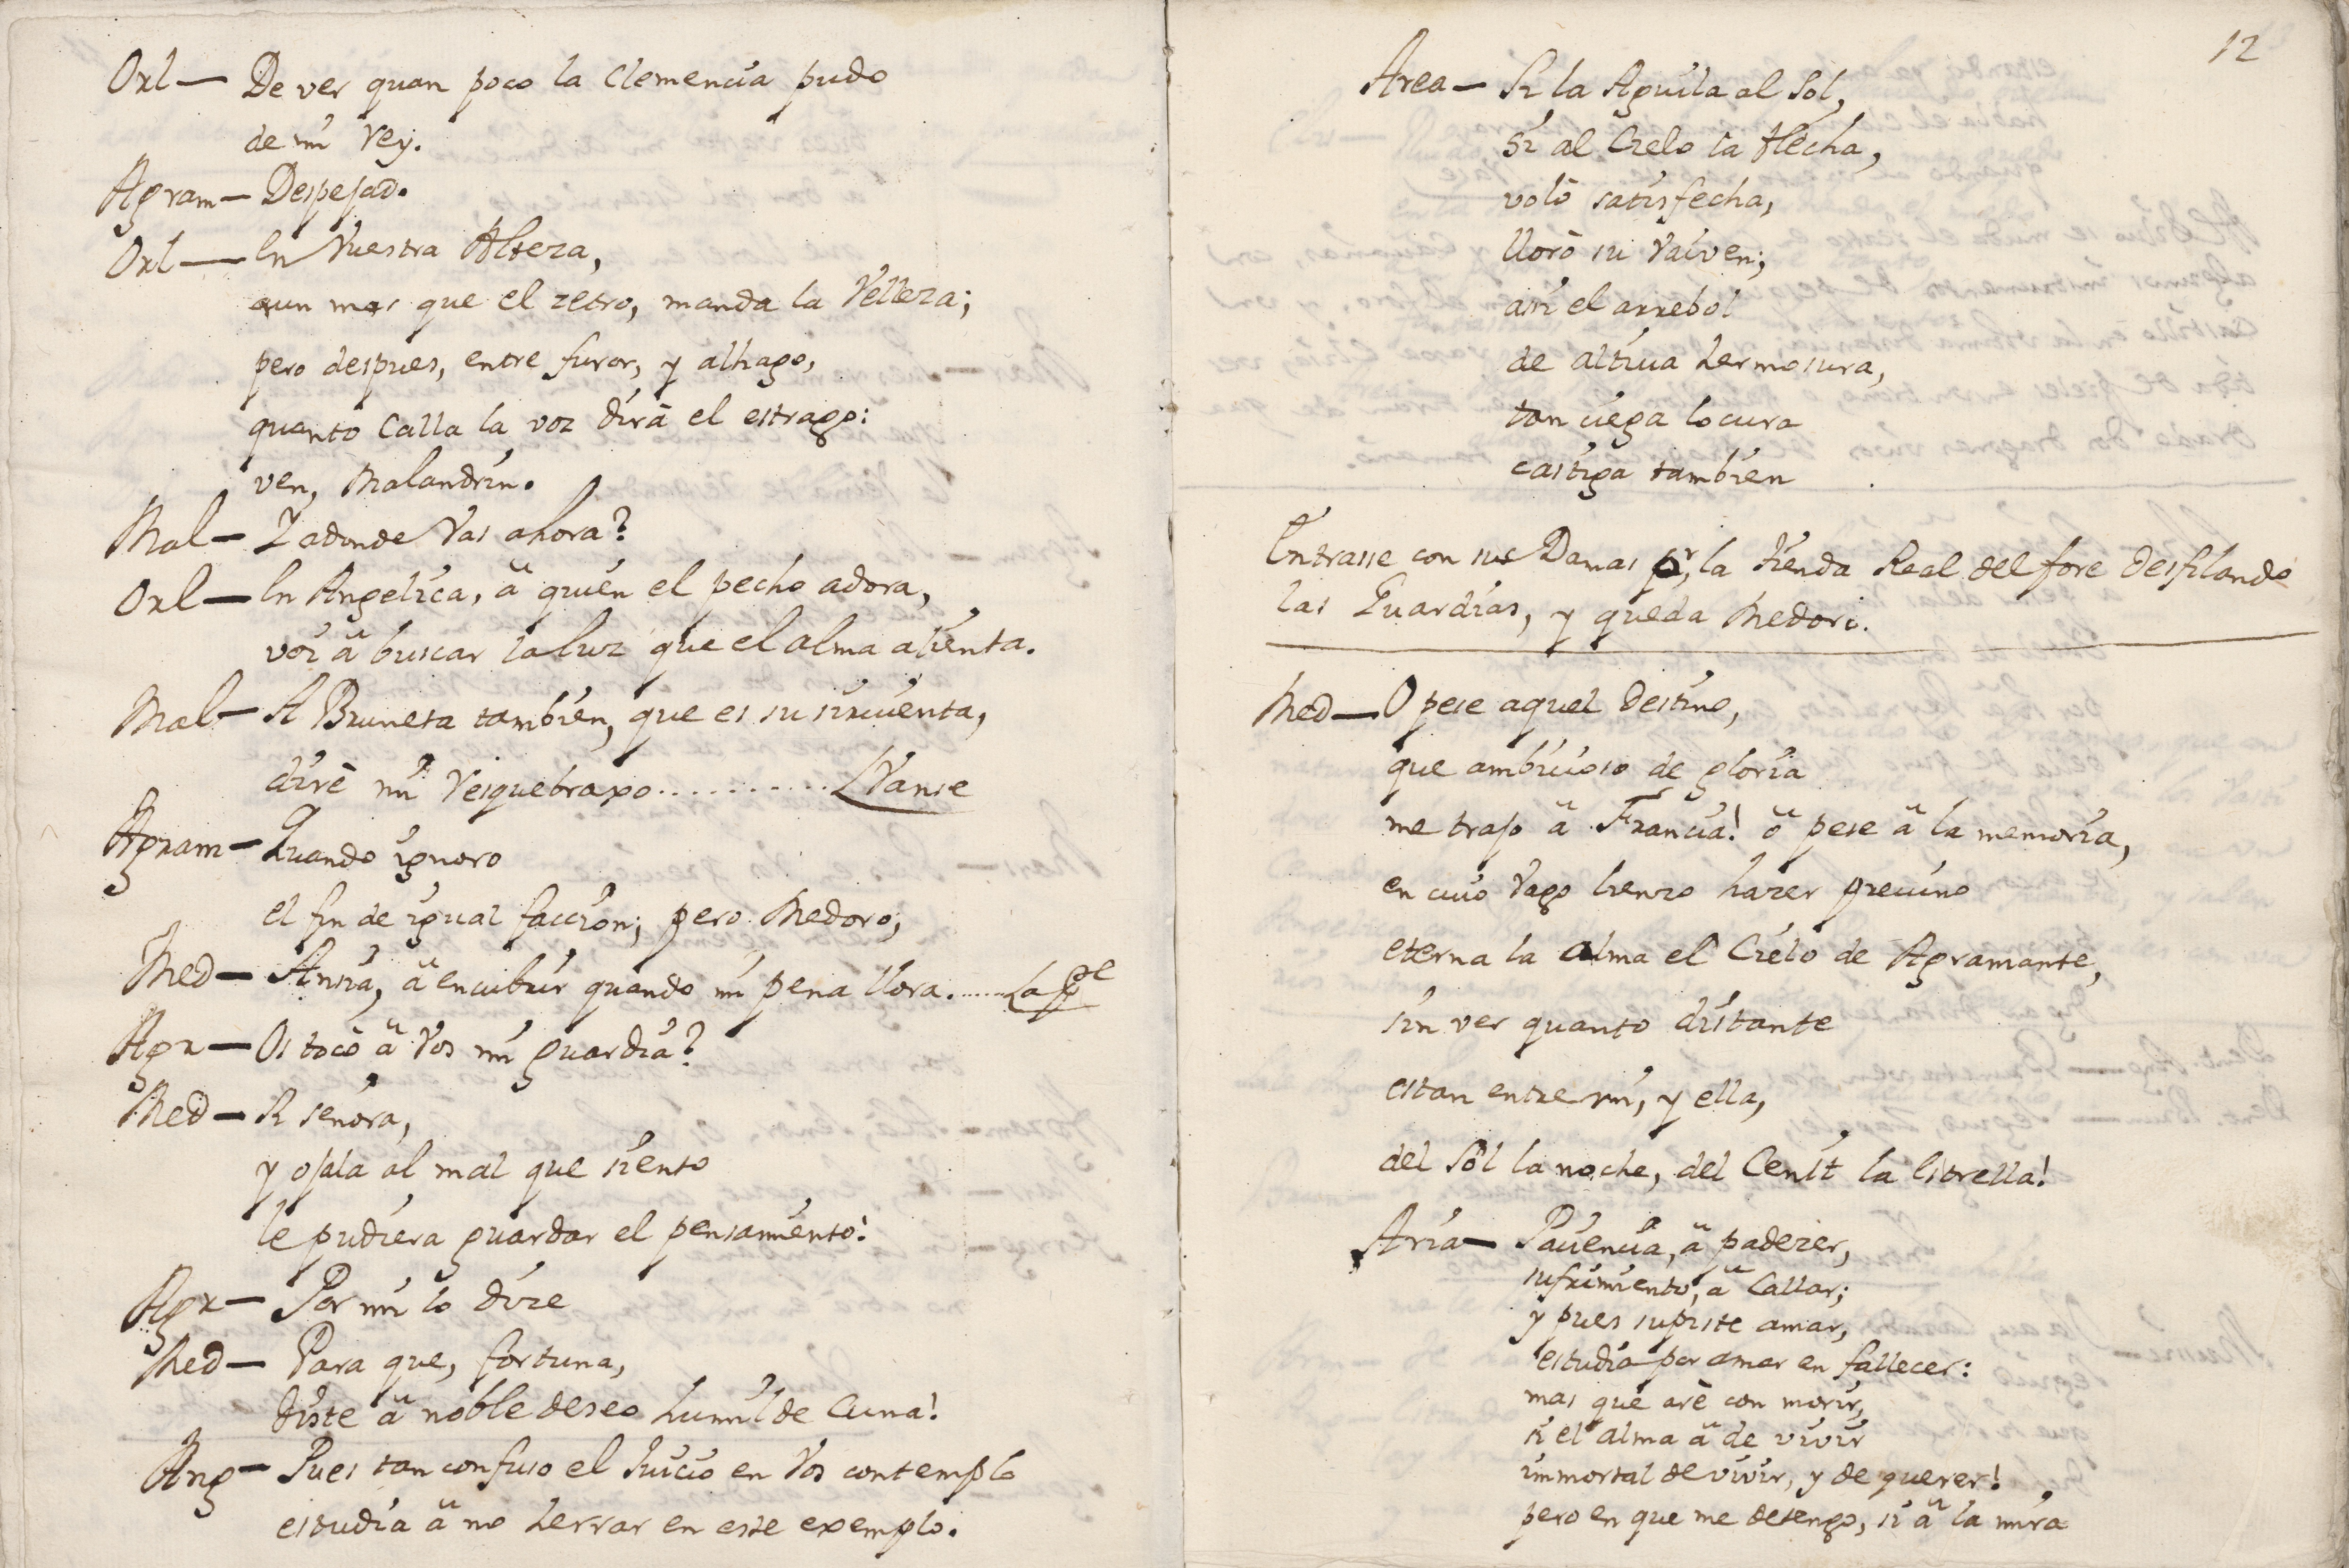 Orl— De ver quan poco la Clemencia pudo
de mi Rey.
Agram— Despejad.
Orl— En Vuestra Alteza,
aun mas que el zetro, manda la Velleza;
pero despues, entre furor, y alhago,
quanto Calla la voz dirà el estrago:
ven, Malandrin.
Mal— Y adonde Vas ahora?
Orl— En Angelica, â quien el pecho adora,
voi â buscar la luz que el alma alienta.
Mal— A Bruneta tambien, que es su sirvienta,
dirè mi Resquebraxo........... Vanse
Agram— Quando ignoro
el fin de igual faccion; pero Medoro;
Med— Ansia, â encubrir quando mi pena llora.
Agr— Os tocò â Vos mi guardia?
Med— Si señora,
y ojala al mal que siento
le pudiera guardar el pensamiento!
Agr— Por mi lo dize
Med— Para que, fortuna,
diste â noble deseo humilde Cuna!
Ang— Pues tan confuso el Juicio en Vos contemplo
estudia â no herrar en este exemplo.
12
Area— Si la Aguila al Sol,
Si al Cielo la flecha,
volò satisfecha,
llorò su Vaiven;
asi el arrebol
de altiva hermosura,
tan ciega locura
castiga tambien
Entrasse con sus Damas pr, la tienda Real del foro desfilando
las Guardias, y queda Medoro.
Med— O pese aquel destino,
que ambicioso de gloria
me trajo â Francia! ô pese â la memoria,
en cuio Vago lienzo hazer previno
eterna la alma el Cielo de Agramante,
sin ver quanto distante
estan entre mi, y ella,
del Sol la noche, del Cenit la Estrella!
Aria— Paciencia, â padezer,
sufrimiento, â Callar;
y pues supiste amar,
estudia por amar en fallecer:
mas què arè con morir,
si el alma â de vivir
immortal de vivir, y de querer!
pero en que me detengo, si â la mira